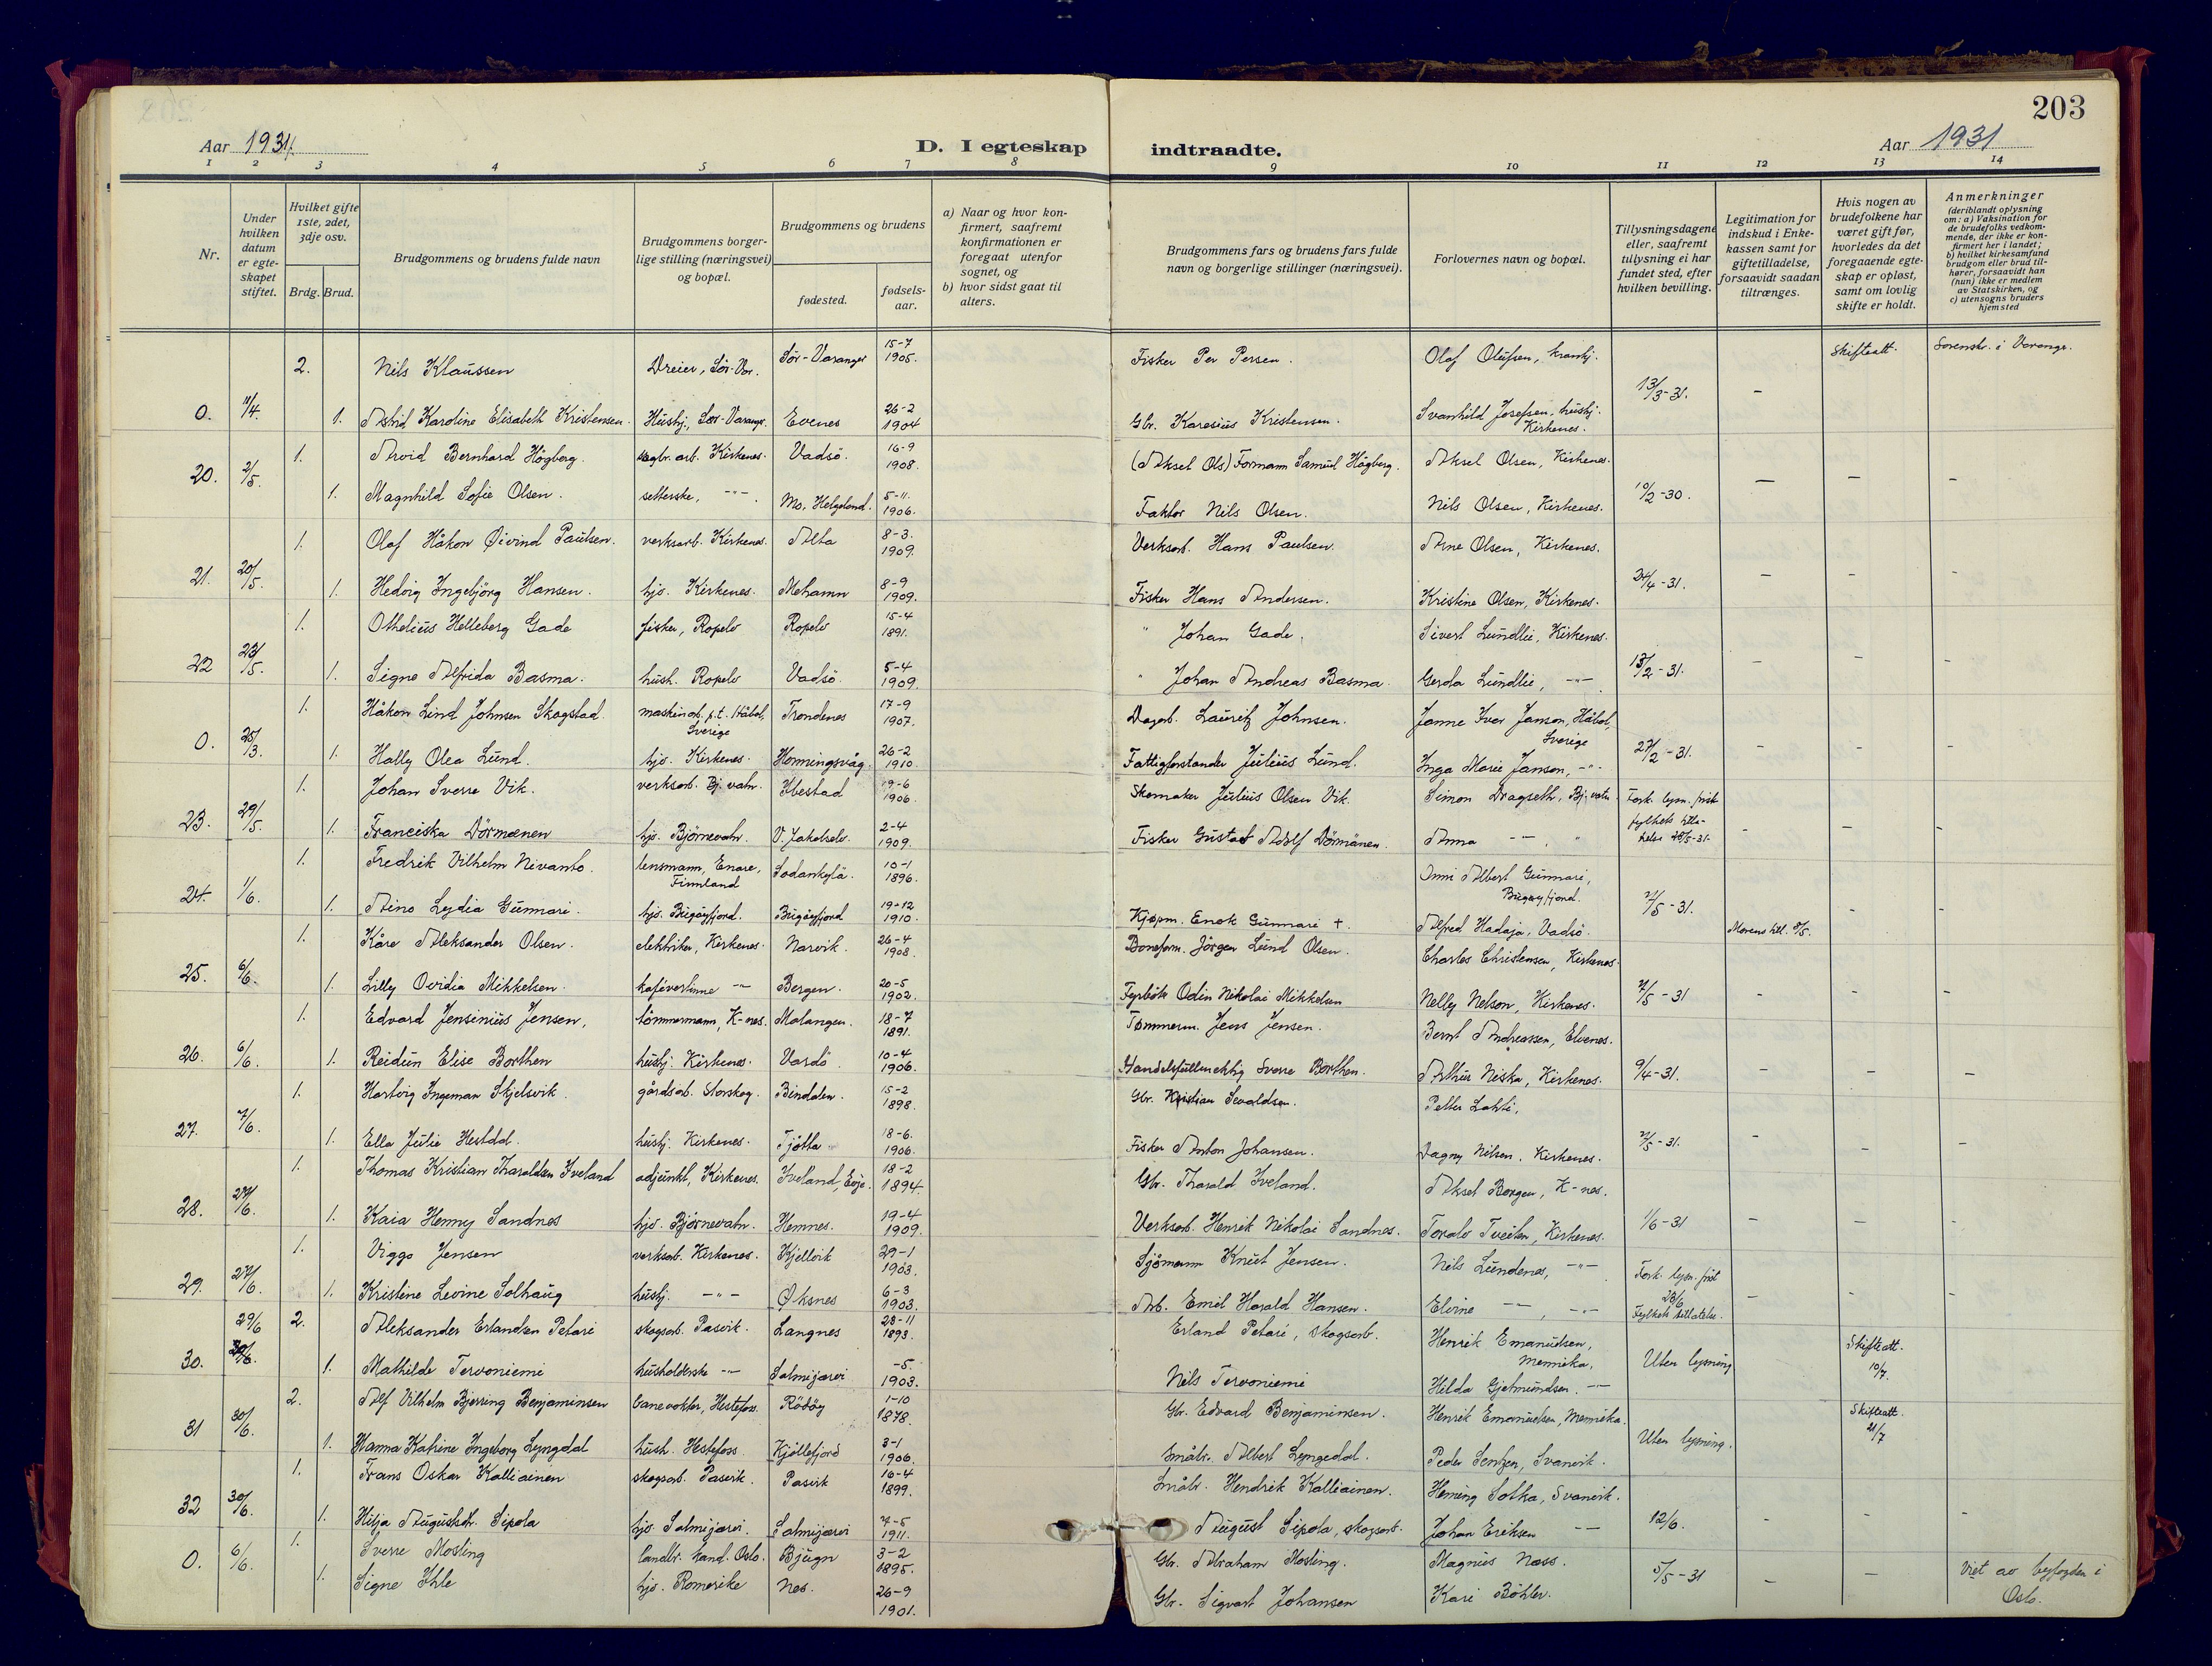 203
Aar 1931.
D. I egteskap indtraadte.
Aar 1931
1 2 3 4 5 6 7 8 9 10 11 12 13 14
Nr.
Under hvilken datum er egteskapet stiftet.
Hvilket gifte 1ste, 2det, 3dje osv.
Brdg. Brud.
Brudgommens og brudens fulde navn
Brudgommens borgerlige stilling (næringsvei) og bopæl.
Brudgommens og brudens
fødested.
fødselsaar.
a) Naar og hvor konfirmert, saafremt konfirmationen er foregaat utenfor sognet, og
b) hvor sidst gaat til alters.
Brudgommens fars og brudens fars fulde navn og borgerlige stillinger (næringsvei).
Forlovernes navn og bopæl.
Tillysningsdagene eller, saafremt tillysning ei har fundet sted, efter hvilken bevilling.
Legitimation for indskud i Enkekassen samt for giftetilladelse, forsaavidt saadan tiltrænges.
Hvis nogen av brudefolkene har været gift før, hvorledes da det foregaaende egteskap er opløst, samt om lovlig skifte er holdt.
Anmerkninger (deriblandt oplysning om: a) Vaksination for de brudefolks vedkommende, der ikke er konfirmert her i landet; b) hvilket kirkesamfund brudgom eller brud tilhører, forsaavidt han (hun) ikke er medlem av Statskirken, og c) utensogns bruders hjemsted
2. Nils Klaussen Dreier, Sör-Var. Sör-Varanger 15-7 1905. Fisker Per Persen. Olaf Olufsen, Skifteatt. Sorenskr. i Varanger.
0. 11/4. 1. Astrid Karoline Elisabeth Kristensen. Hushj., Sör-Varange. Evenes 26-2 1904 Gbr. Karesius Kristensen. Svanhild Josefsen, hushj. Kirkenes. 13/3-31. -
1. Arvid Bernhard Högberg. sagbr. arb. Kirkenes. Vadsö. 16-9 1908. (Aksel Ols) Formann Samuel Högberg. Aksel Olsen, Kirkenes.
20. 2/5. 1. Magnhild Sofie Olsen. setterske, -"-. Mo, Helgeland. 5-11. 1906. Faktor Nils Olsen. Nils Olsen, Kirkenes. 10/2-30. - - -
1. Olaf Håkon Øivind Paulsen. verksarb. Kirkenes. Alta 8-3. 1909. Verksarb. Hans Paulsen. Arne Olsen, Kirkenes.
21. 20/5. 1. Hedvig Ingebjörg Hansen. hjv. Kirkenes. Mehamn 8-9 1909. Fisker Hans Andersen. Kristine Olsen, Kirkenes. 24/4-31. - - -
1. Othelius Helleberg Gade fisker, Ropelv Ropelv 15-4 1891. " Johan Gade. Sivert Lundlie, Kirkenes.
22 23/5. 1. Signe Alfrida Basma. hush. Ropelv Vadsö. 5-4 1909. " Johan Andreas Basma. Gerda Lundlie, -"-. 13/2-31. - - -
1. Håkon Lind Johnsen Skogstad. maskinarb. p.t. Håbol, Sverige Trondenes 17-9 1907. Dagarb. Lauritz Johnsen. Janne Ivar Janson, Håbol, Sverige
0. 25/3. 1. Hally Olea Lund. hjv. Kirkenes. Honningsvåg. 26-2 1910. Fattigforstander Julius Lund. Inga Marie Janson, -"- 27/2-31. - - -
1. Johan Sverre Vik. verksarb. Bj. vatn. Ibestad 19-6 1906. Skomaker Julius Olsen Vik. Simon Dragseth, Bj. vatn. Fork. lysn. frist
23. 29/5. 1. Franciska Dörmænen hjv. Björnevatn. V. Jakobselv. 2-4 1909. Fisker Gustaf Adolf Dörmänen. Anna -"-, " fylkets tilla-telse 28/5-31. - - -
1. Fredrik Vilhelm Nivanto. lensmann, Enare, Finnland Sodankylä. 10-1 1896. Onni Albert Gunnari, Bugöyfjord.
24. 1/6. 1. Aino Lydia Gunnari. hjv. Bugöyfjord. Bugöyfjord 19-12 1910. Kjøpm. Enok Gunnari +. Alfred Hadaja, Vadsö. /5-31. Morens till. - -
1. Kåre Aleksander Olsen. elektriker, Kirkenes. Narvik. 26-4 1908. Baneform. Jörgen Lund Olsen. Charles Christensen, Kirkenes.
25. 6/6. 1. Lilly Ovidia Mikkelsen. kafévertinne -"- Bergen. 20-5 1902. Fyrbök Odin Nikolai Mikkelsen Nelly Nelson, Kirkenes. /5-31 - - -
1. Edvard Jensinius Jensen, tömmermann, K-nes. Malangen. 18-7 1891. Tömmerm. Jens Jensen. Bernt Andreassen, Elvenes.
26. 6/6. 1. Reidun Elise Borthen hushj. Kirkenes. Vardö 10-4 1906. Handelsfullmektig Sverre Borthen. Arthur Niska, Kirkenes. 9/4-31. - - -
1. Hartvig Ingeman Skjelsvik. gårdsarb. Storskog. Bindalen. 15-2 1898. Gbr. Kristian Sevaldsen. Petter Lahti,
27. 7/6. 1. Ella Julie Hestdal. hushj. Kirkenes. Tjötta 18-6. 1906. Fisker Anton Johansen. Dagny Nilsen. Kirkenes. /5-31. - - -
1. Thomas Kristian Tharaldsen Iveland adjunkt, Kirkenes. Iveland, Evje. 18-2 1894. Gbr. Tharald Iveland. Aksel Borgen, K-nes.
28. 27/6. 1. Kaia Henny Sandnes hjv. Björnevatn. Hemnes. 19-4 1909. Verksarb. Henrik Nikolai Sandnes. Toralv Tveiten, Kirkenes. 1/6-31 - - -
1. Viggo Jensen verksarb. Kirkenes. Kjelvik 29-1 1903. Sjömann Knut Jensen. Nils Lundenes, -"-. Fork. lysn. frist
29. 27/6. 1. Kristine Levine Solhaug hushj. -"- Øksnes 6-3 1903. Arb. Emil Harald Hansen. Elvine -"-, -"- 23/6 Fylkets tillatelse. - - -
29/6 2. Aleksander Erlandsen Petari skogsarb. Pasvik. Langnes 23-11 1893. Erland Petari, skogsarb. Henrik Emanuelsen, Mennika, Skifteatt. 10/7.
30. 1. Mathilde Tervoniemi husholderske -"- Salmijarvi -5. 1903. Nils Tervoniemi Hilda Gjetmundsen. -"- Uten lysning
2. Alf Vilhelm Bjerring Benjaminsen banevokter, Hestefoss. Rödöy 1-10 1878. Gbr. Edvard Benjaminsen. Henrik Emanuelsen, Mennika. Skifteatt. 21/7
31 30/6. 1. Hanna Katrine Ingeborg Lyngdal hush. Hestefoss Kjöllefjord 3-1 1906. Småbr. Albert Lyngedal. Peder Sentzen, Svanvik. Uten lysning.
1. Frans Oskar Kalliainen skogsarb. Pasvik. Pasvik 16-4 1899. Småbr. Hendrik Kalliainen. Heming Sotka, Svanvik.
32 30/6. 1. Hilja Augustdr. Sipola hjv. Salmijarvi. Salmijarvi 7-5 1911. August Sipola, skogsarb. Johan Eriksen -"- 12/6. - - -
1. Sverre Mosling landbr. kand. Oslo. Bjugn 3-2 1895. Gbr. Abraham Mosling. Magnus Næss.
0. 6/6. 1. Signe Ihle hjv. Romerike Nes. 26-9 1901. Gbr. Sigvart Johansen Kari Böhler. 5/5-31 - - Viet av byfogden i Oslo.